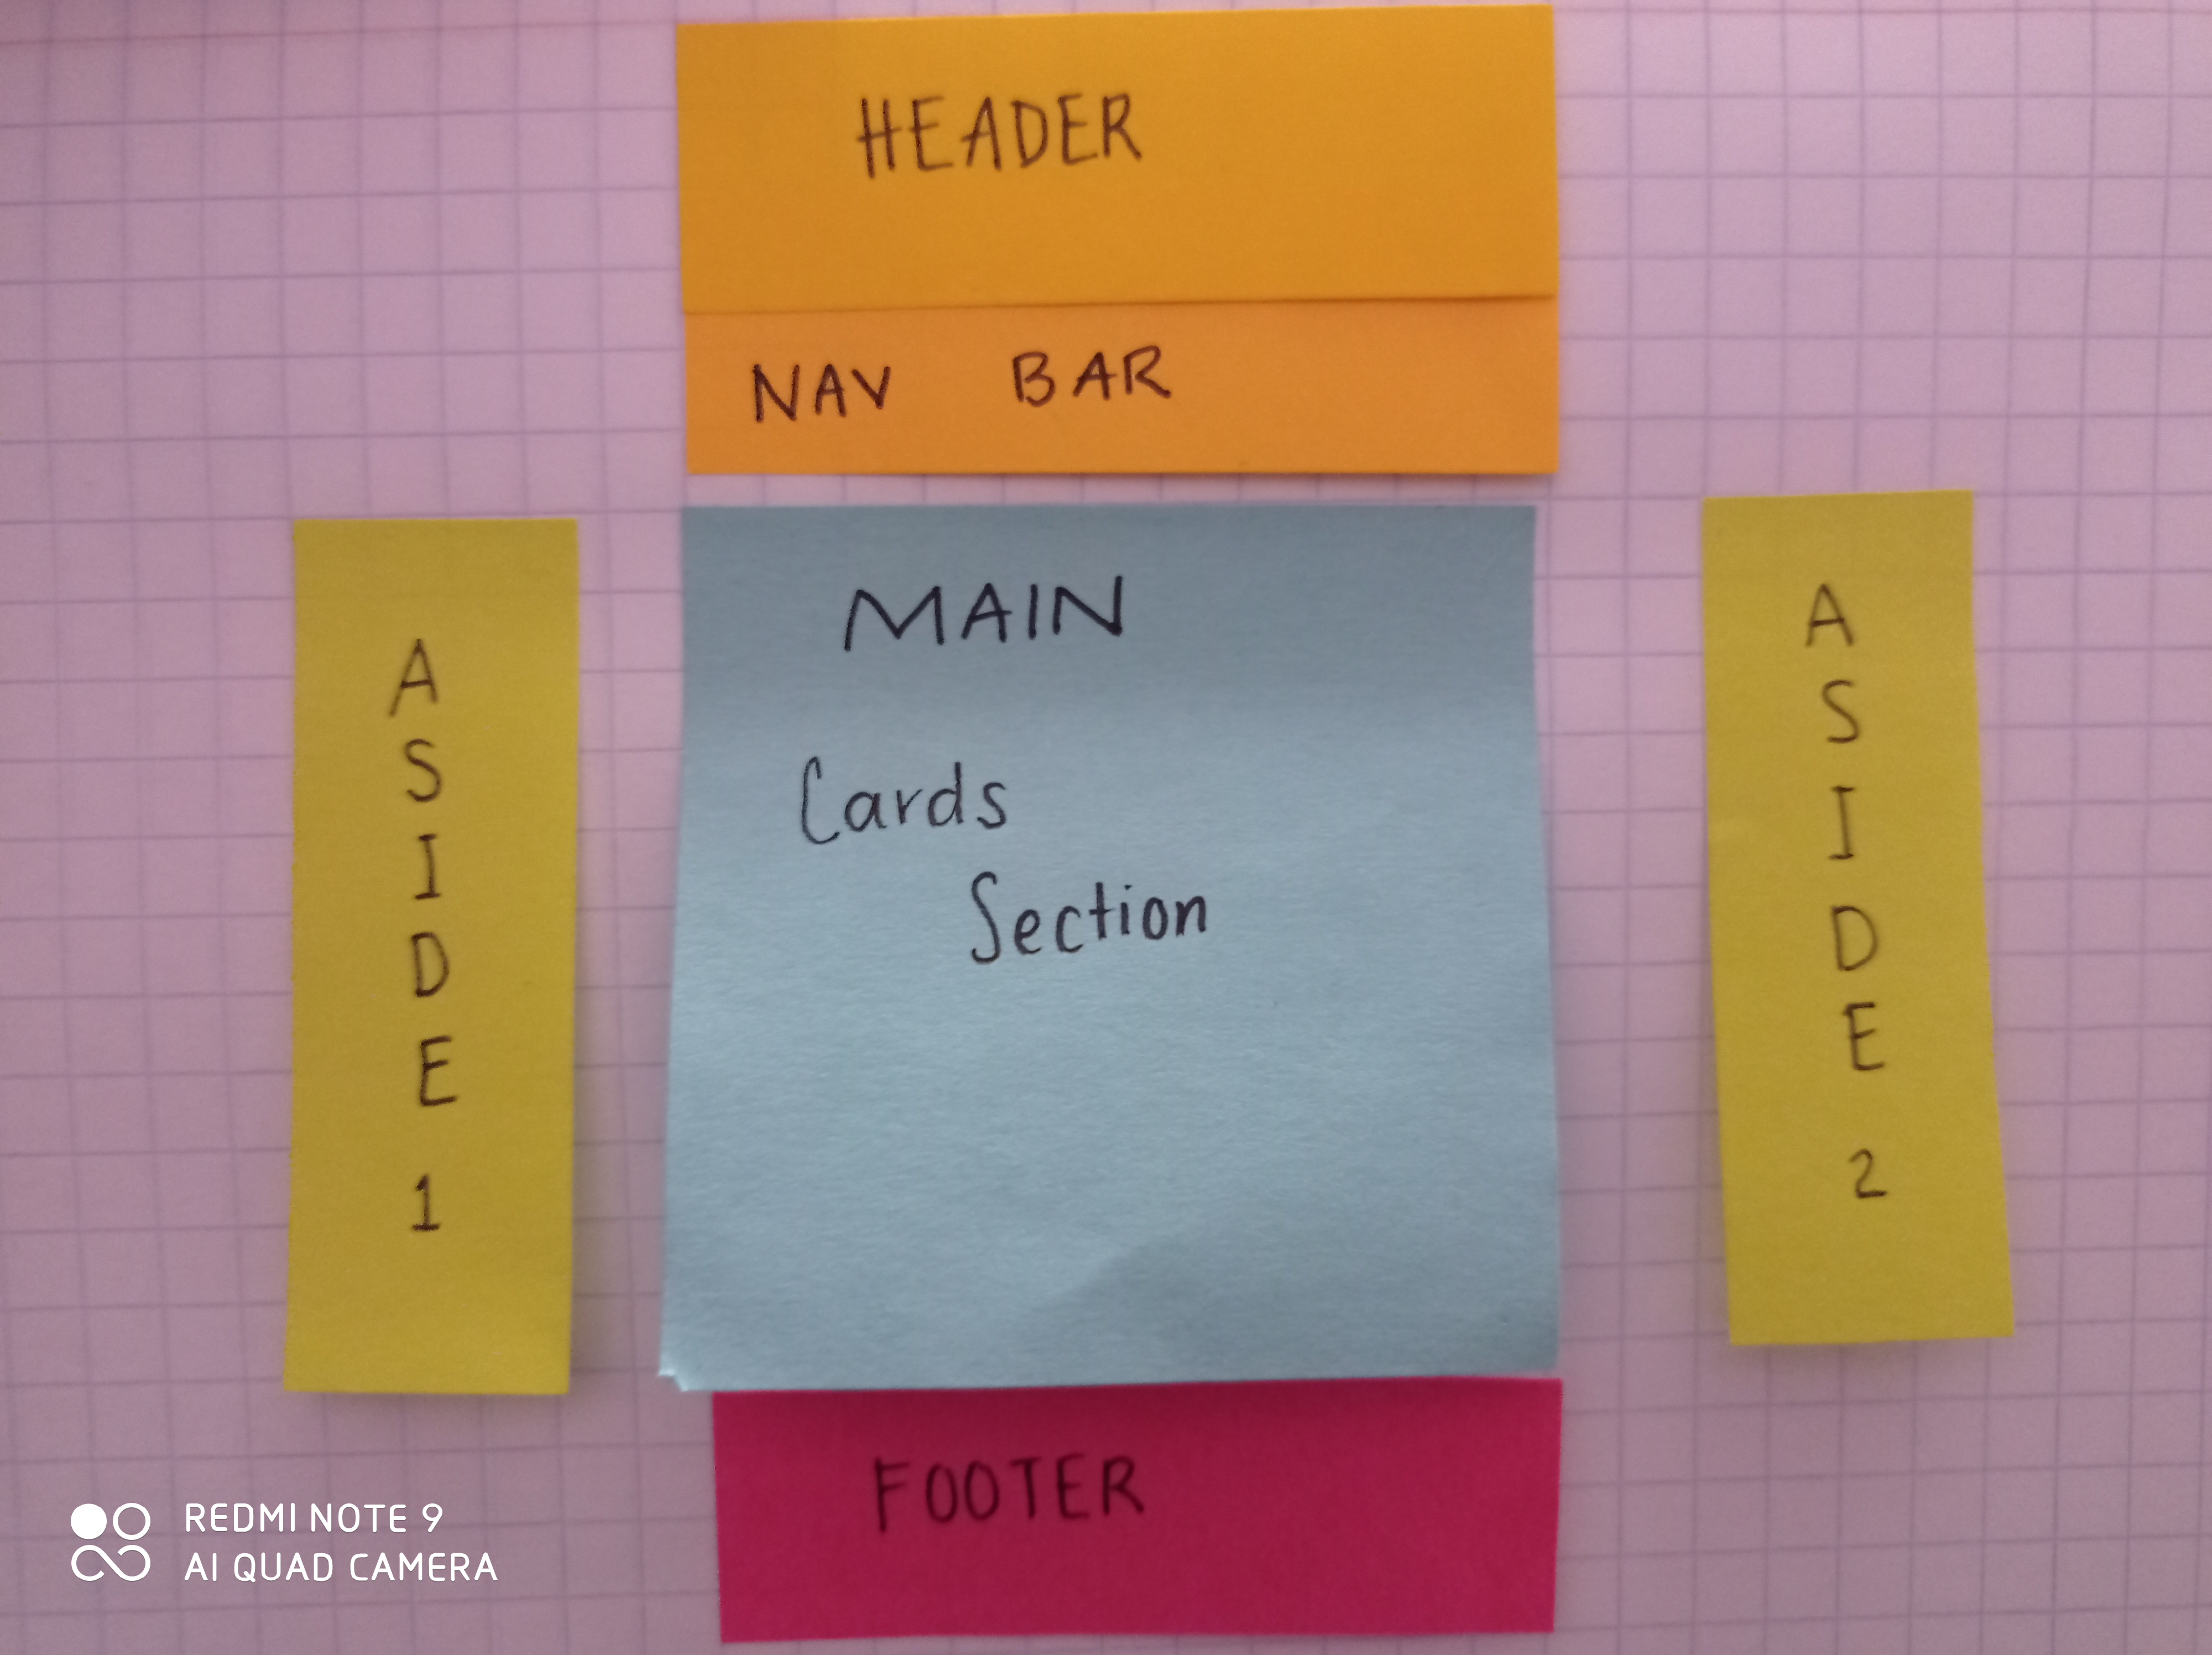 HEADER
NAV BAR
ASIDE 1
MAIN
Cards
Section
ASIDE 2
FOOTER
REDMI NOTE 9
AI QUAD CAMERA